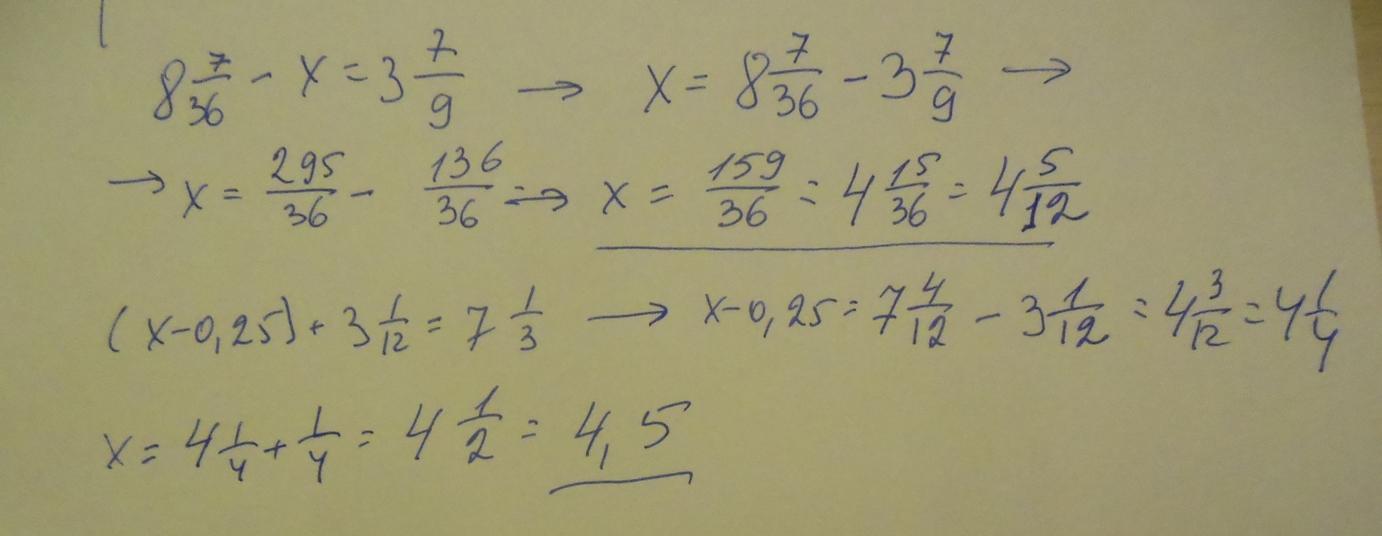 8 7/36 - x = 3 7/9 → x = 8 7/36 - 3 7/9 →
→ x = 295/36 - 136/36 = → x = 159/36 = 4 15/36 = 4 5/12
(x-0,25) + 3 1/12 = 7 1/3 → x-0,25 = 7 4/12 - 3 1/12 = 4 3/12 = 4 1/4
x = 4 1/4 + 1/4 = 4 1/2 = 4,5